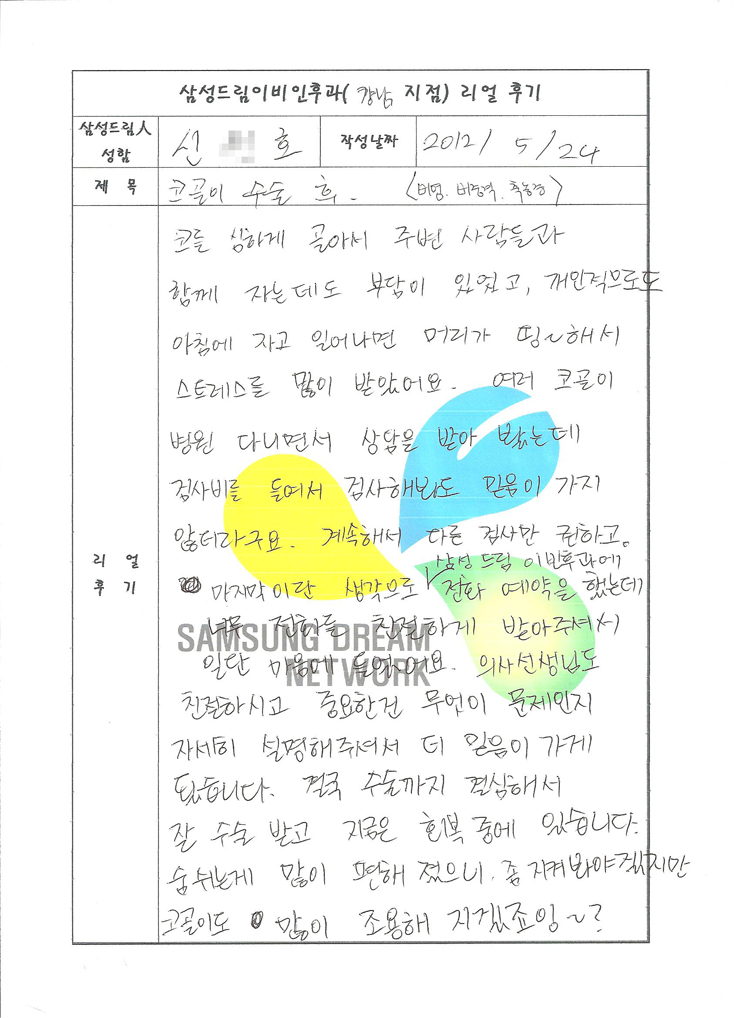 삼성드림이비인후과( 강남 지점) 리얼 후기
삼성드림人 성함
신 호
작성날짜
2012/ 5/24
제 목
코골이 수술 후. (비염, 비중격, 축농증)
리 얼 후 기
코를 심하게 골아서 주변 사람들과
함께 자는데도 부담이 있었고, 개인적으로도
아침에 자고 일어나면 머리가 띵~해서
스트레스를 많이 받았어요. 여러 코골이
병원 다니면서 상담을 받아 봤는데
검사비를 들여서 검사해봐도 믿음이 가지
않더라구요. 계속해서 다른 검사만 권하고.
마지막이란 생각으로 삼성 드림 이빈후과에 전화 예약을 했는데
너무 전화를 친절하게 받아주셔서
일단 마음에 들었어요. 의사선생님도
친절하시고 중요한건 무엇이 문제인지
자세히 설명해주셔서 더 믿음이 가게
됬습니다. 결국 수술까지 결심해서
잘 수술 받고 지금은 회복 중에 있습니다.
숨쉬는게 많이 편해 졌으니, 좀 지켜봐야겠지만
코골이도 많이 조용해 지겠죠잉~?
SAMSUNG DREAM
NETWORK